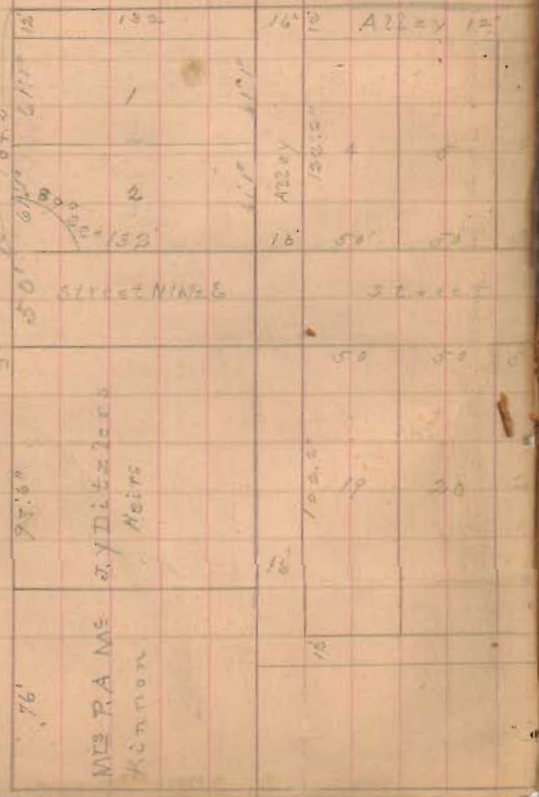 12' 132 16' 12 Alley 12'
61'1" 1 61'1"
Alley
122'2"
61'1" 2 61'1"
90°
132' 16 50' 50'
50' Street N 16½ E Street
50 50 5
97'6"
J. Y Ditzlers
Heirs
122'2" 19 20
16
16
76'
Mrs P. A Mc
Kinnon